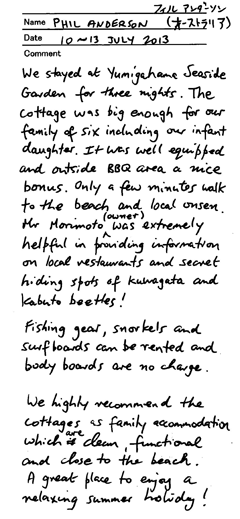 フィル アンダーソン
Name PHIL ANDERSON (オーストラリア)
Date 10~13 JULY 2013
Comment
We stayed at Yumigahama Seaside
Garden for three nights. The
cottage was big enough for our
family of six including our infant
daughter. It was well equipped
and outside BBQ area a nice
bonus. Only a few minutes walk
to the beach and local onsen.
(owner)
Mr Morimoto was extremely
helpful in providing information
on local restaurants and secret
hiding spots of kuwagata and
kabuto beetles!
Fishing gear, snorkels and
surfboards can be rented and
body boards are no charge.
We highly recommend the
cottages as family accomodation
are
which is clean, functional
and close to the beach.
A great place to enjoy a
relaxing summer holiday!